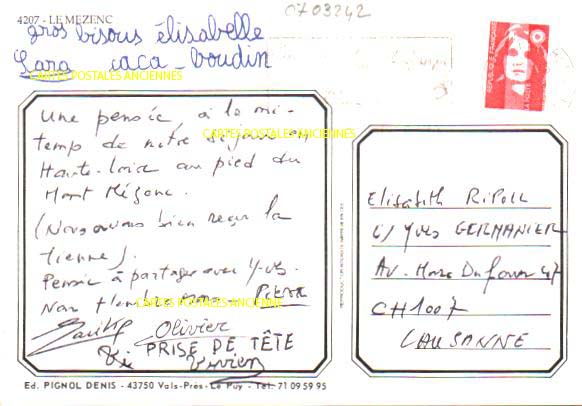 4207 - LE MEZENC
0703242
gros bisous élisabelle
Lara caca-boudin
CARTES POSTALES ANCIENNES
REPUBLIQUE FRANÇAISE
Une pensée, à la mi-
temps de notre séjour en
CARTES POSTALES ANCIENNES
Haute-Loire au pied du
Mont Mézenc.
(Nous avons bien reçu la
tienne).
Pensée à partager avec Yves.
Nous t'embrassons. Pierre
CARTES POSTALES ANCIENNES
Olivier
PRISE DE TÊTE
Vivien
Elisabeth RIPOLL
c/ Yves GERMANIER
Av. Marc Dufour 47
CH 1007
LAUSANNE
Ed. PIGNOL DENIS - 43750 Vals-Près-Le Puy - Tél. 71 09 59 95